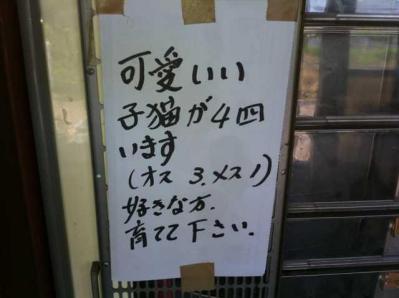 可愛いい
子猫が4四
います
(オス 3.メス1)
好きな方.
育てて下さい.